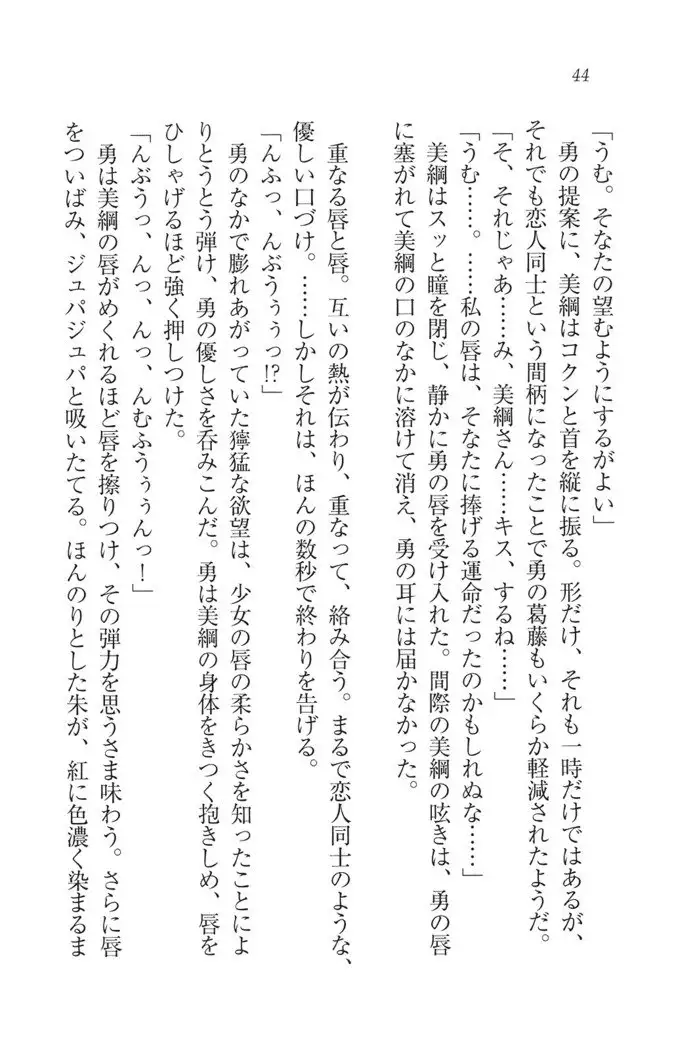 44
「うむ。そなたの望むようにするがよい」
勇の提案に、美綱はコクンと首を縦に振る。形だけ、それも一時だけではあるが、
それでも恋人同士という間柄になったことで勇の葛藤もいくらか軽減されたようだ。
「そ、それじゃあ……み、美綱さん……キス、するね……」
「うむ……。……私の唇は、そなたに捧げる運命だったのかもしれぬな……」
美綱はスッと瞳を閉じ、静かに勇の唇を受け入れた。間際の美綱の呟きは、勇の唇
に塞がれて美綱の口のなかに溶けて消え、勇の耳には届かなかった。
重なる唇と唇。互いの熱が伝わり、重なって、絡み合う。まるで恋人同士のような、
優しい口づけ。……しかしそれは、ほんの数秒で終わりを告げる。
「んふっ、んぶうぅぅっ!?」
勇のなかで膨れあがっていた獰猛な欲望は、少女の唇の柔らかさを知ったことによ
りとうとう弾け、勇の優しさを呑みこんだ。勇は美綱の身体をきつく抱きしめ、唇を
ひしゃげるほど強く押しつけた。
「んぶうっ、んっ、んっ、んむふうぅぅんっ！」
勇は美綱の唇がめくれるほど唇を擦りつけ、その弾力を思うさま味わう。さらに唇
をついばみ、ジュパジュパと吸いたてる。ほんのりとした朱が、紅に色濃く染まるま